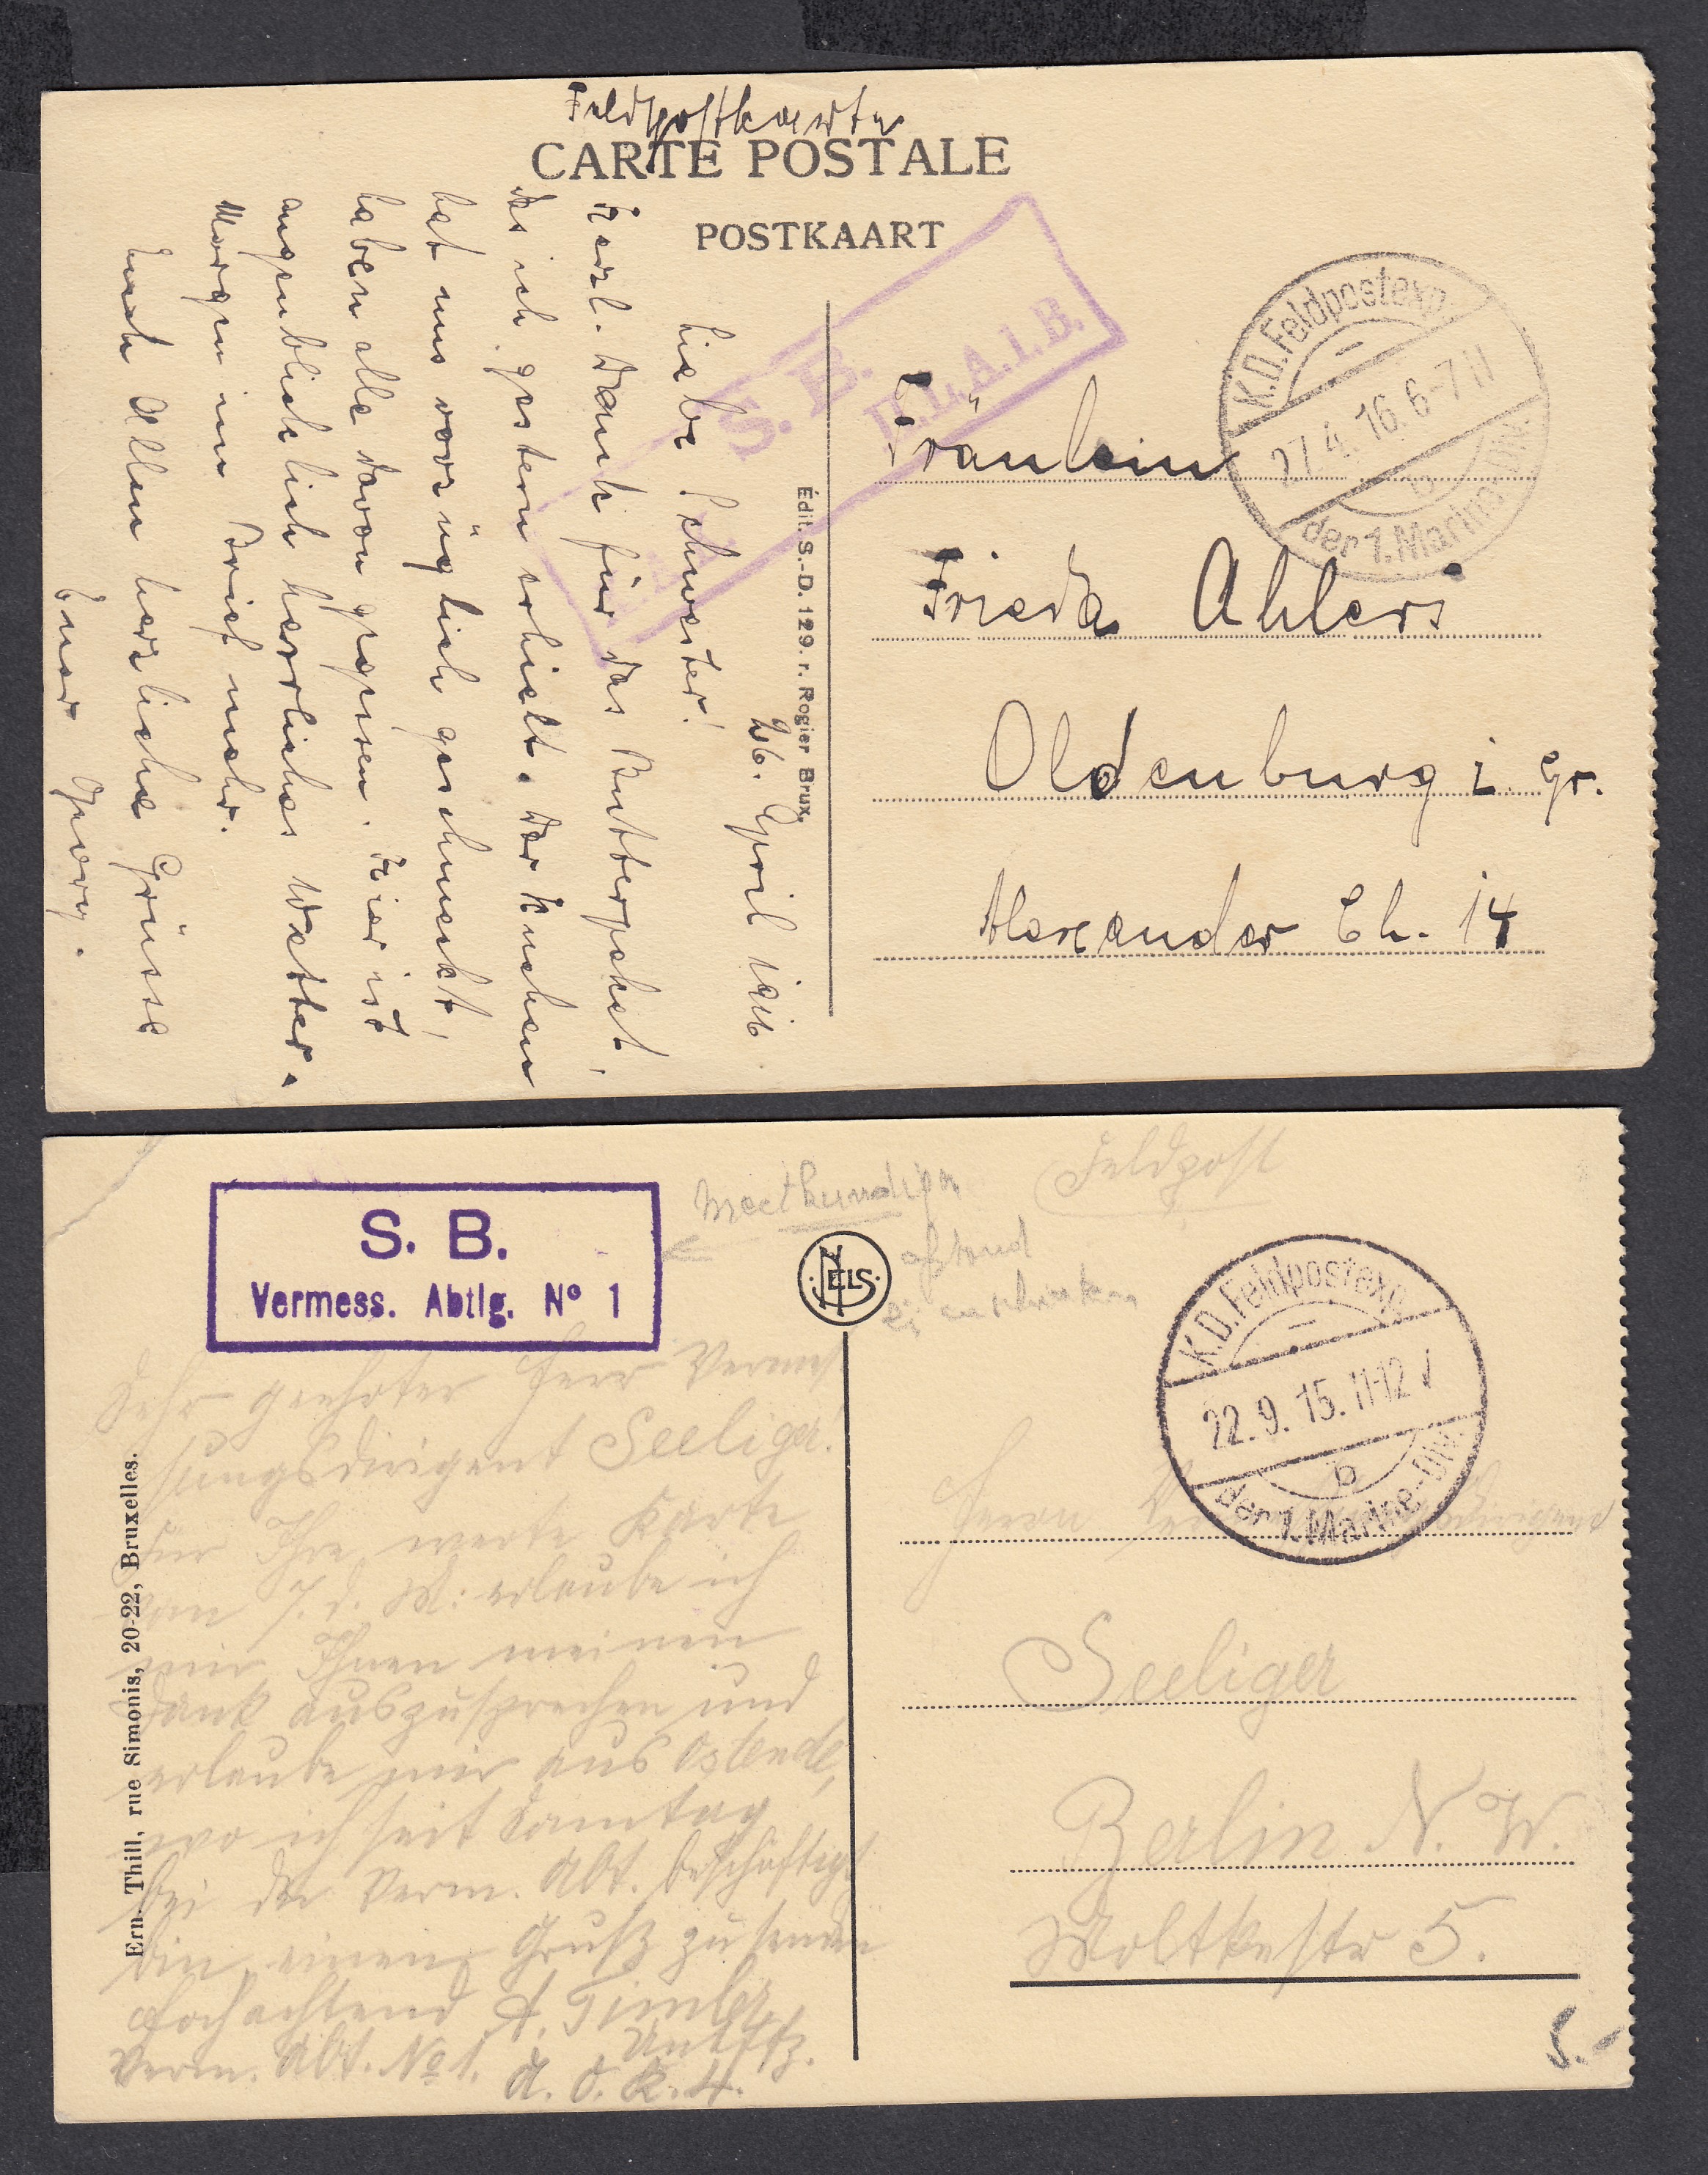 Feldpostkarte
CARTE POSTALE
POSTKAART
S. B.
II. L. A. I. B.
K.D. Feldpostexp.
27.4.16. 6-7 N
b
der 1. Marine-Div.
Édit. S.-D. 129. r. Rogier Brux.
26. April 1916
Liebe Schwester!
Herzl. Dank für das Butterpaket,
das ich gestern erhielt. Der Kuchen
hat uns vorzüglich geschmeckt,
haben alle davon gegessen. Hier ist
augenblicklich herrliches Wetter.
Morgen im Brief mehr.
Euch Allen herzliche Grüsse
Euer Georg.
Fräulein
Frieda Ahlers
Oldenburg i. Gr.
Alexander Ch. 14
Feldpost
S. B.
Vermess. Abtlg. Nº 1
meetkundigen
afstand
NELS
K.D. Feldpostexp.
22.9.15. 11-12 V
b
der 1. Marine-Div.
Ern. Thill, rue Simonis, 20-22, Bruxelles.
Sehr geehrter Herr Vermes
sungsdirigent Seeliger!
Für Ihre werte Karte
vom 7. d. M. erlaube ich
mir Ihnen meinen
Dank auszusprechen und
erlaube mir aus Ostende,
wo ich seit Samtag
bei der Verm. Abt. beschäftigt
bin einen Gruß zu senden
Hochachtend A. Timler
Untffz.
Verm. Abt. No 1. A. O. K. 4.
Herrn Vermessungsdirigend
Seeliger
Berlin N. W.
Moltkestr 5.
5.-